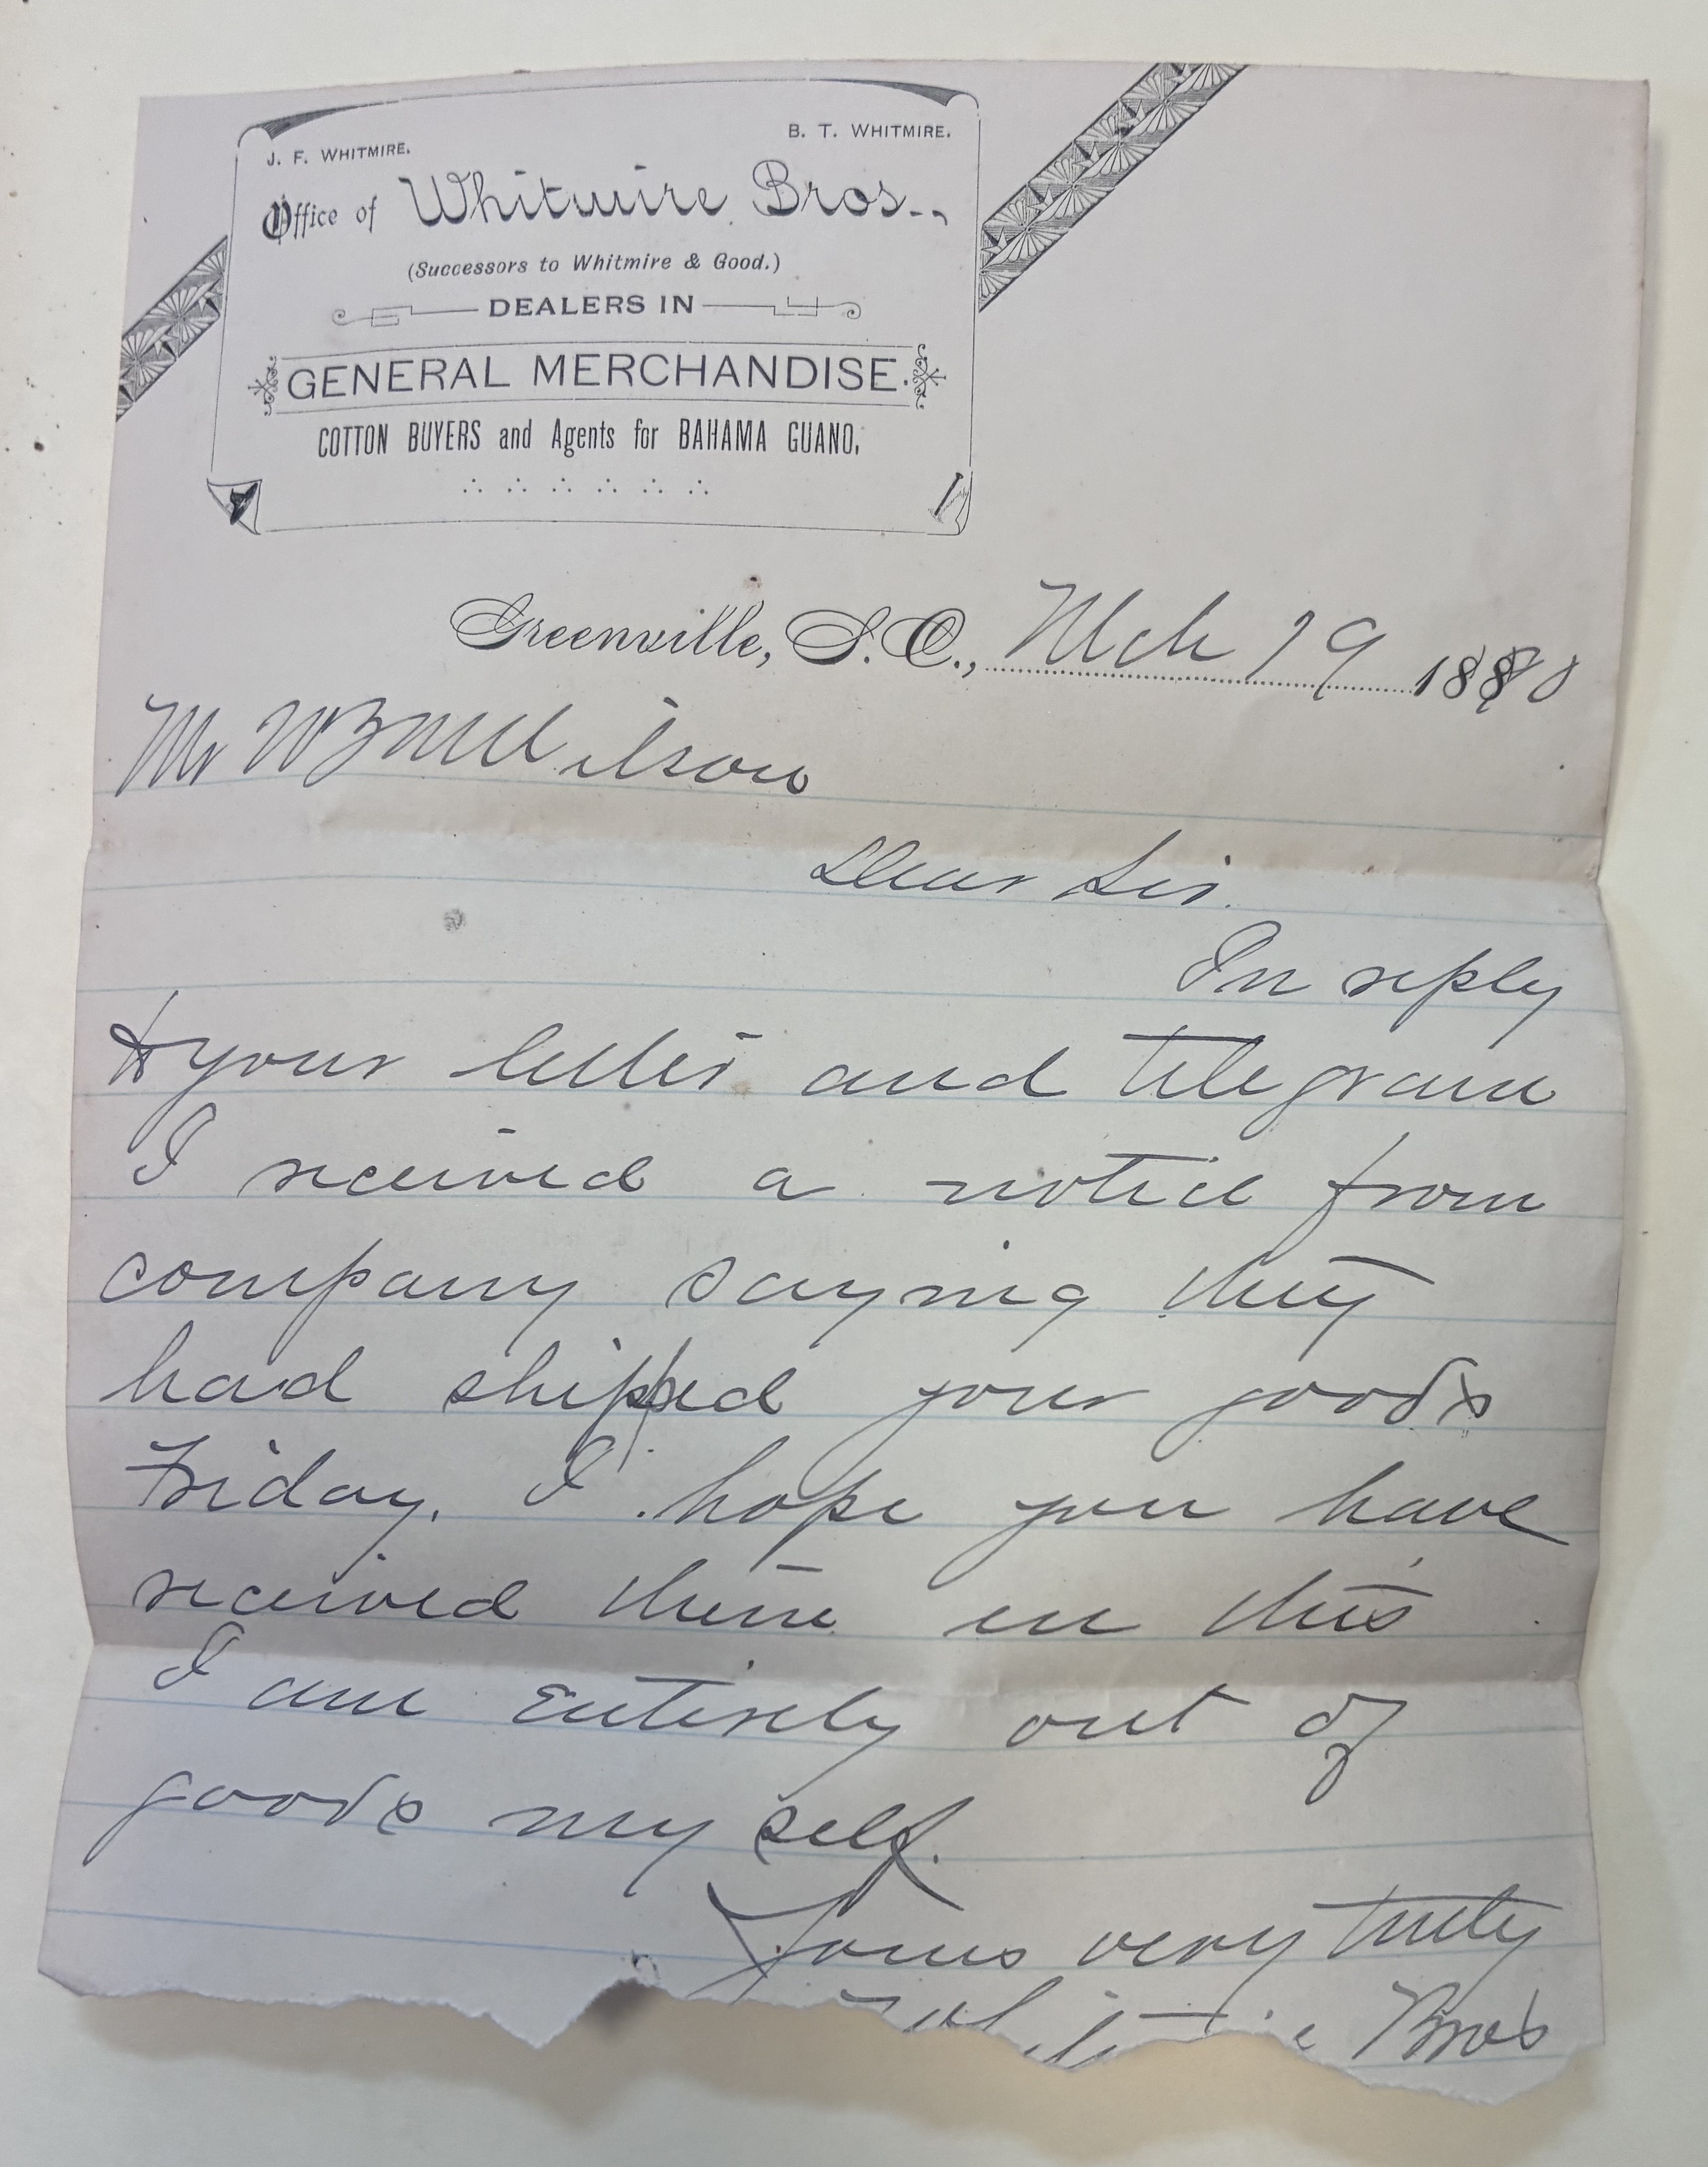 J. F. WHITMIRE.
B. T. WHITMIRE.
Office of Whitmire Bros.,
(Successors to Whitmire & Good.)
DEALERS IN
GENERAL MERCHANDISE.
COTTON BUYERS and Agents for BAHAMA GUANO,
Greenville, S. C., Mch 19 1890
Mr
Dear Sir.
In reply
to your letter and telegram
I received a notice from
company saying they
had shipped your goods
Friday. I hope you have
received them en this
I am Entirely out of
goods my self.
Yours very truly
Whitmire Bros